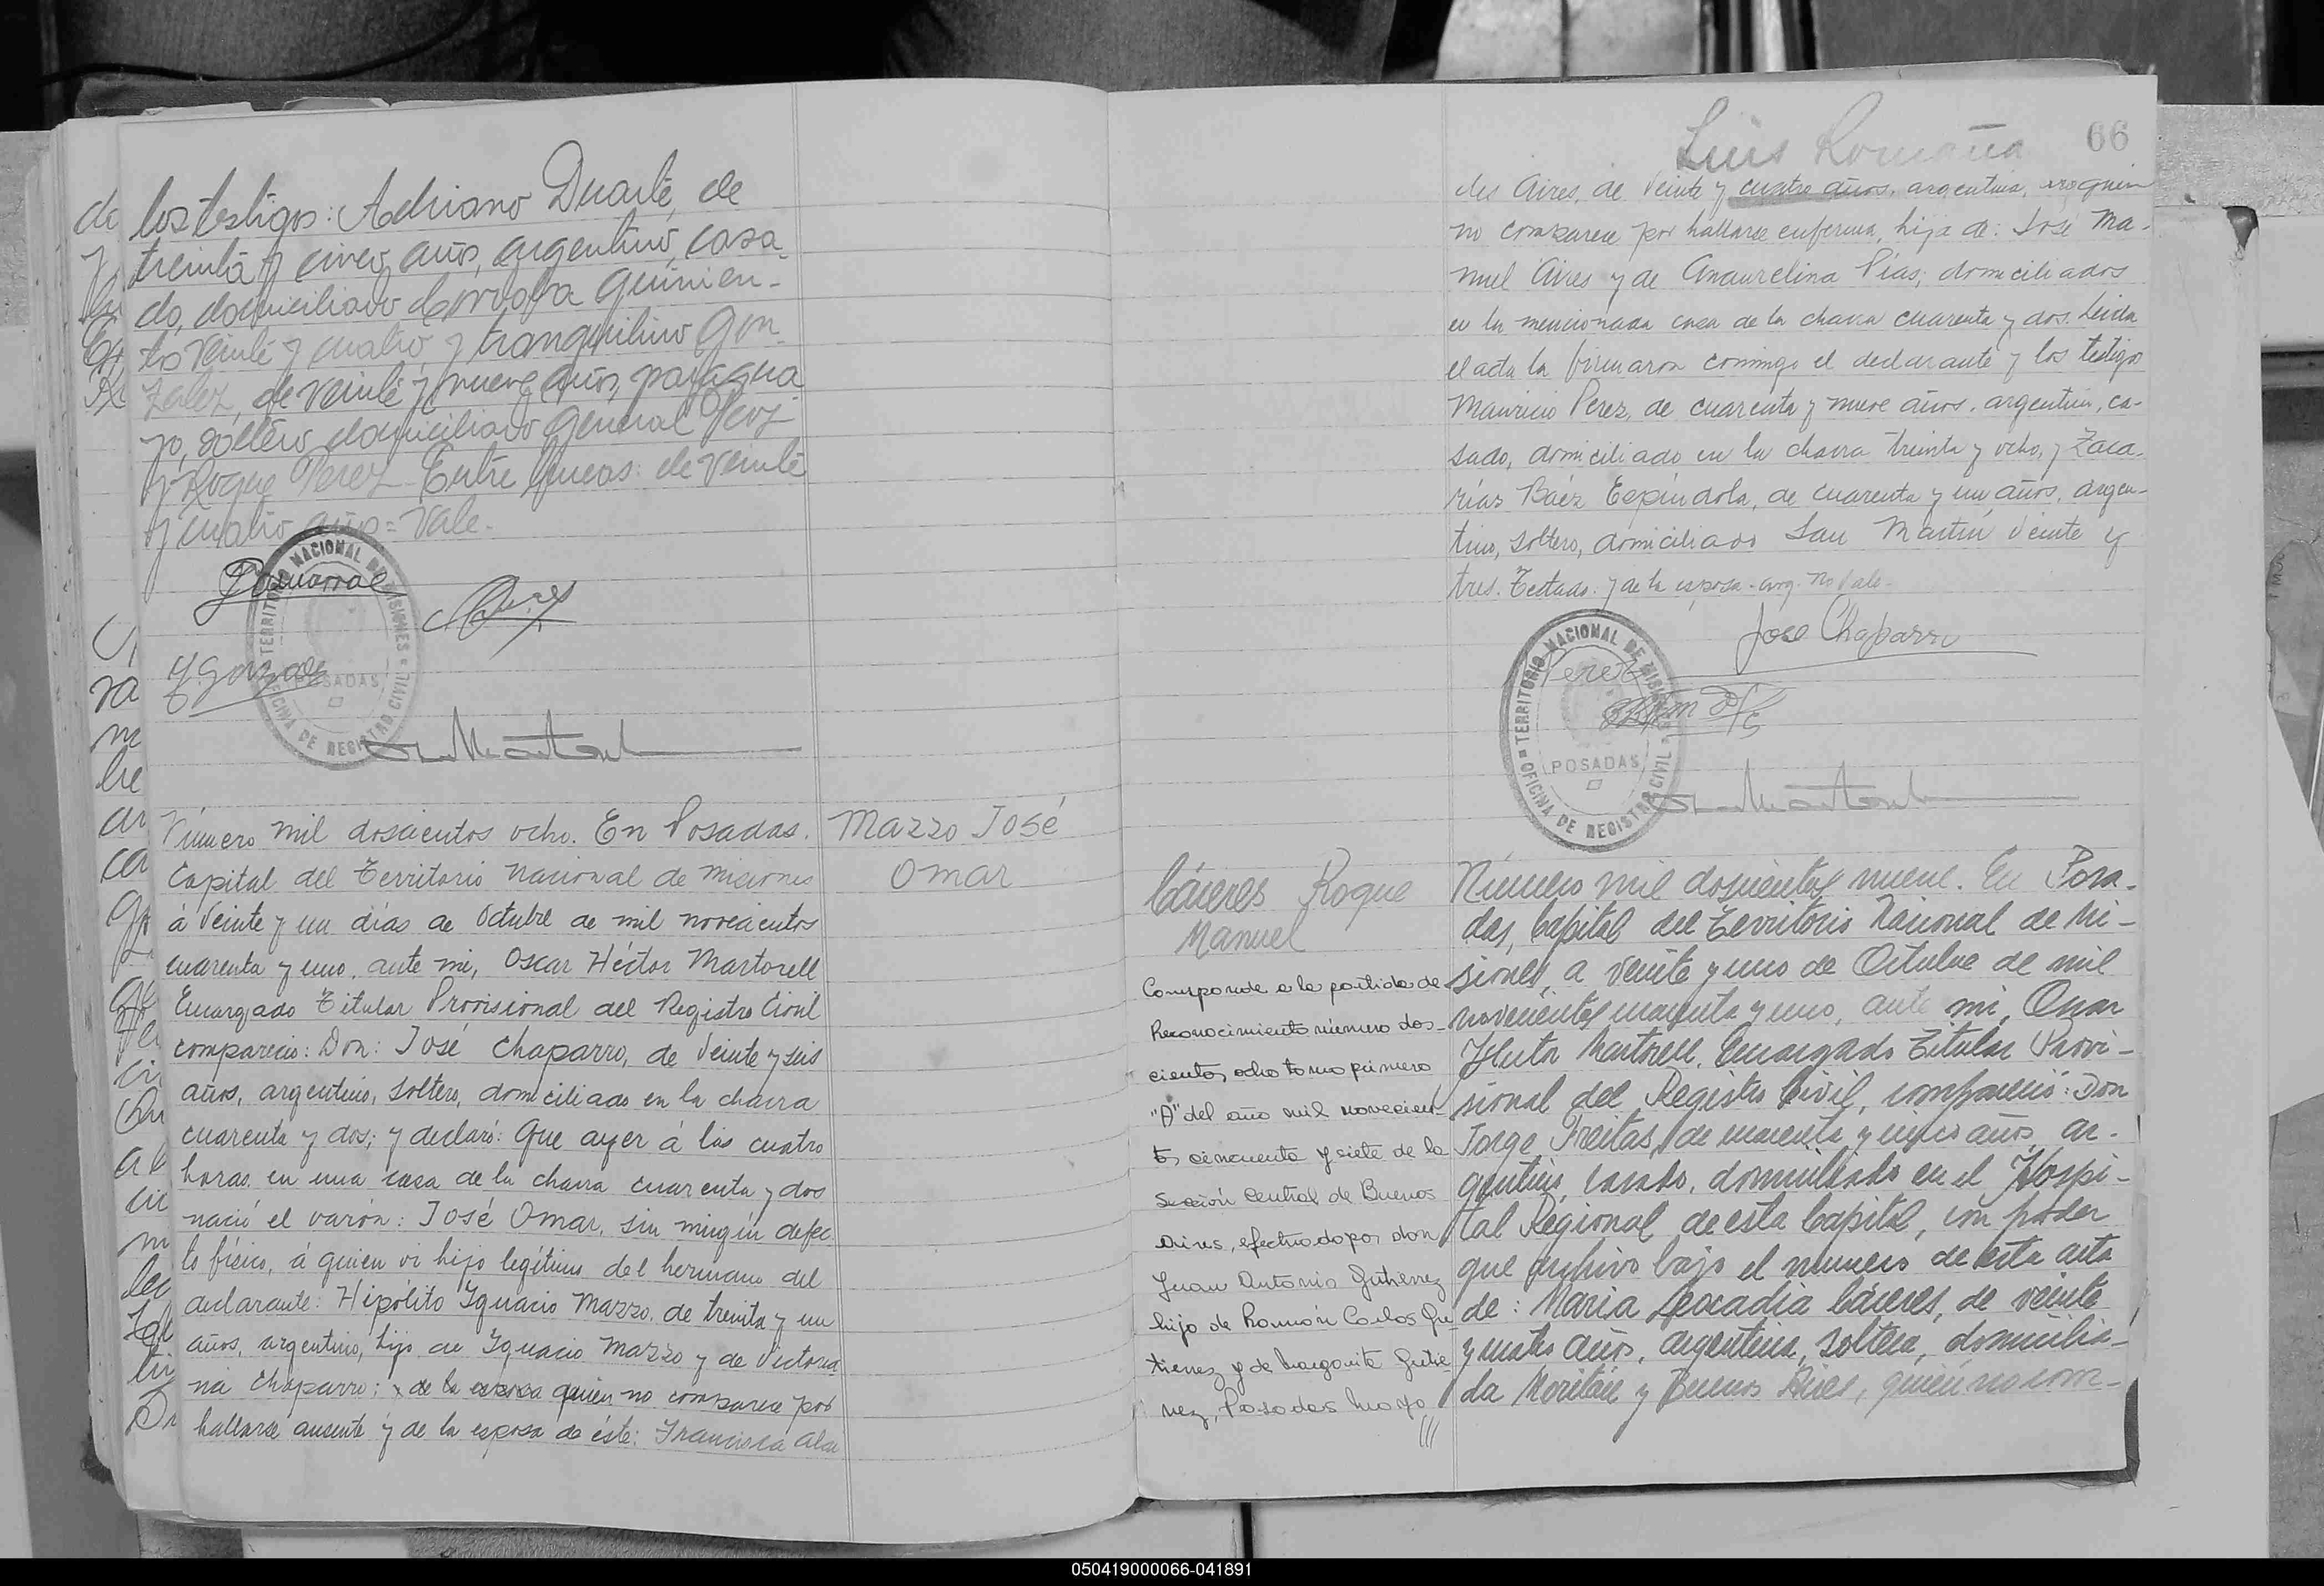 los testigos: Adriano Duarte, de
treinta y cinco años, argentino, casa-
do, domiciliado Cordoba quinien-
tos veinte y cuatro y tranquilino Gon-
zalez, de veinte y nueve años, paragua
yo, soltero domiciliado General Paz
y Roque Perez. Entre lineas: de veinte
y cuatro años = Vale.
TERRITORIO NACIONAL DE MISIONES
POSADAS
OFICINA DE REGISTRO CIVIL
Número mil doscientos ocho. En Posadas.
Capital del Territorio Nacional de misiones
á veinte y un días de Octubre de mil novecientos
cuarenta y uno. ante mi, Oscar Héctor Martorell
Encargado Titular Provisional del Registro Civil
compareció: Don: José Chaparro, de veinte y seis
años, argentino, soltero, domiciliado en la chacra
cuarenta y dos; y declaró: Que ayer á las cuatro
horas. en una casa de la chacra cuarenta y dos
nació el varón: José Omar, sin ningún defec-
to físico, á quien vi hijo legítimo del hermano del
declarante: Hipólito Ignacio Mazzo. de treinta y un
años, argentino, hijo de Ignacio Mazzo y de Victoria
na Chaparro; y de la esposa quien no comparece por
hallarse ausente y de la esposa de éste: Francisca
Mazzo José
Omar
66
Luis Romaña
des Aires, de veinte y cuatro años, argentina,
no comparece por hallarse enferma, hija de: José Ma-
nuel Aires y de Anaurelina Pías; domiciliados
en la mencionada casa de la chacra cuarenta y dos. Leida
el acta la firmaron conmigo el declarante y los testigos
Mauricio Perez, de cuarenta y nueve años. argentino, ca-
sado, domiciliado en la chacra treinta y ocho, y Zaca-
rías Baéz Espíndola, de cuarenta y un años, argen-
tino, soltero, domiciliado San Martín veinte y
tres. Testado: y de la esposa - arg. No vale.
José Chaparro
Perez
TERRITORIO NACIONAL DE MISIONES
POSADAS
OFICINA DE REGISTRO CIVIL
Cáceres Roque
Manuel
Corresponde a la partida de
Reconocimiento número dos-
cientos ocho tomo primero
"A" del año mil novecien-
tos cincuenta y siete de la
Sección Central de Buenos
Aires, efectuado por don
Juan Antonio Gutierrez
hijo de Ramón Carlos Gu-
tierrez y de Margarita Gutie-
rrez, Posadas mayo
///
Número mil doscientos nueve. En Posa-
das, Capital del Territorio Nacional de Mi-
siones, a veinte y uno de Octubre de mil
novecientos cuarenta y uno, ante mi, Oscar
Hector Martorell, Encargado Titular Provi-
sional del Registro Civil, compareció: Don
Jorge Freitas, de cuarenta y cinco años, ar-
gentino, casado, domiciliado en el Hospi-
tal Regional de esta Capital, con poder
que archivo bajo el numero de esta acta
de: Maria Leocadia Cáceres, de veinte
y cuatro años, argentina, soltera, domicilia-
da Moritán y Buenos Aires, quien no com-
050419000066-041891